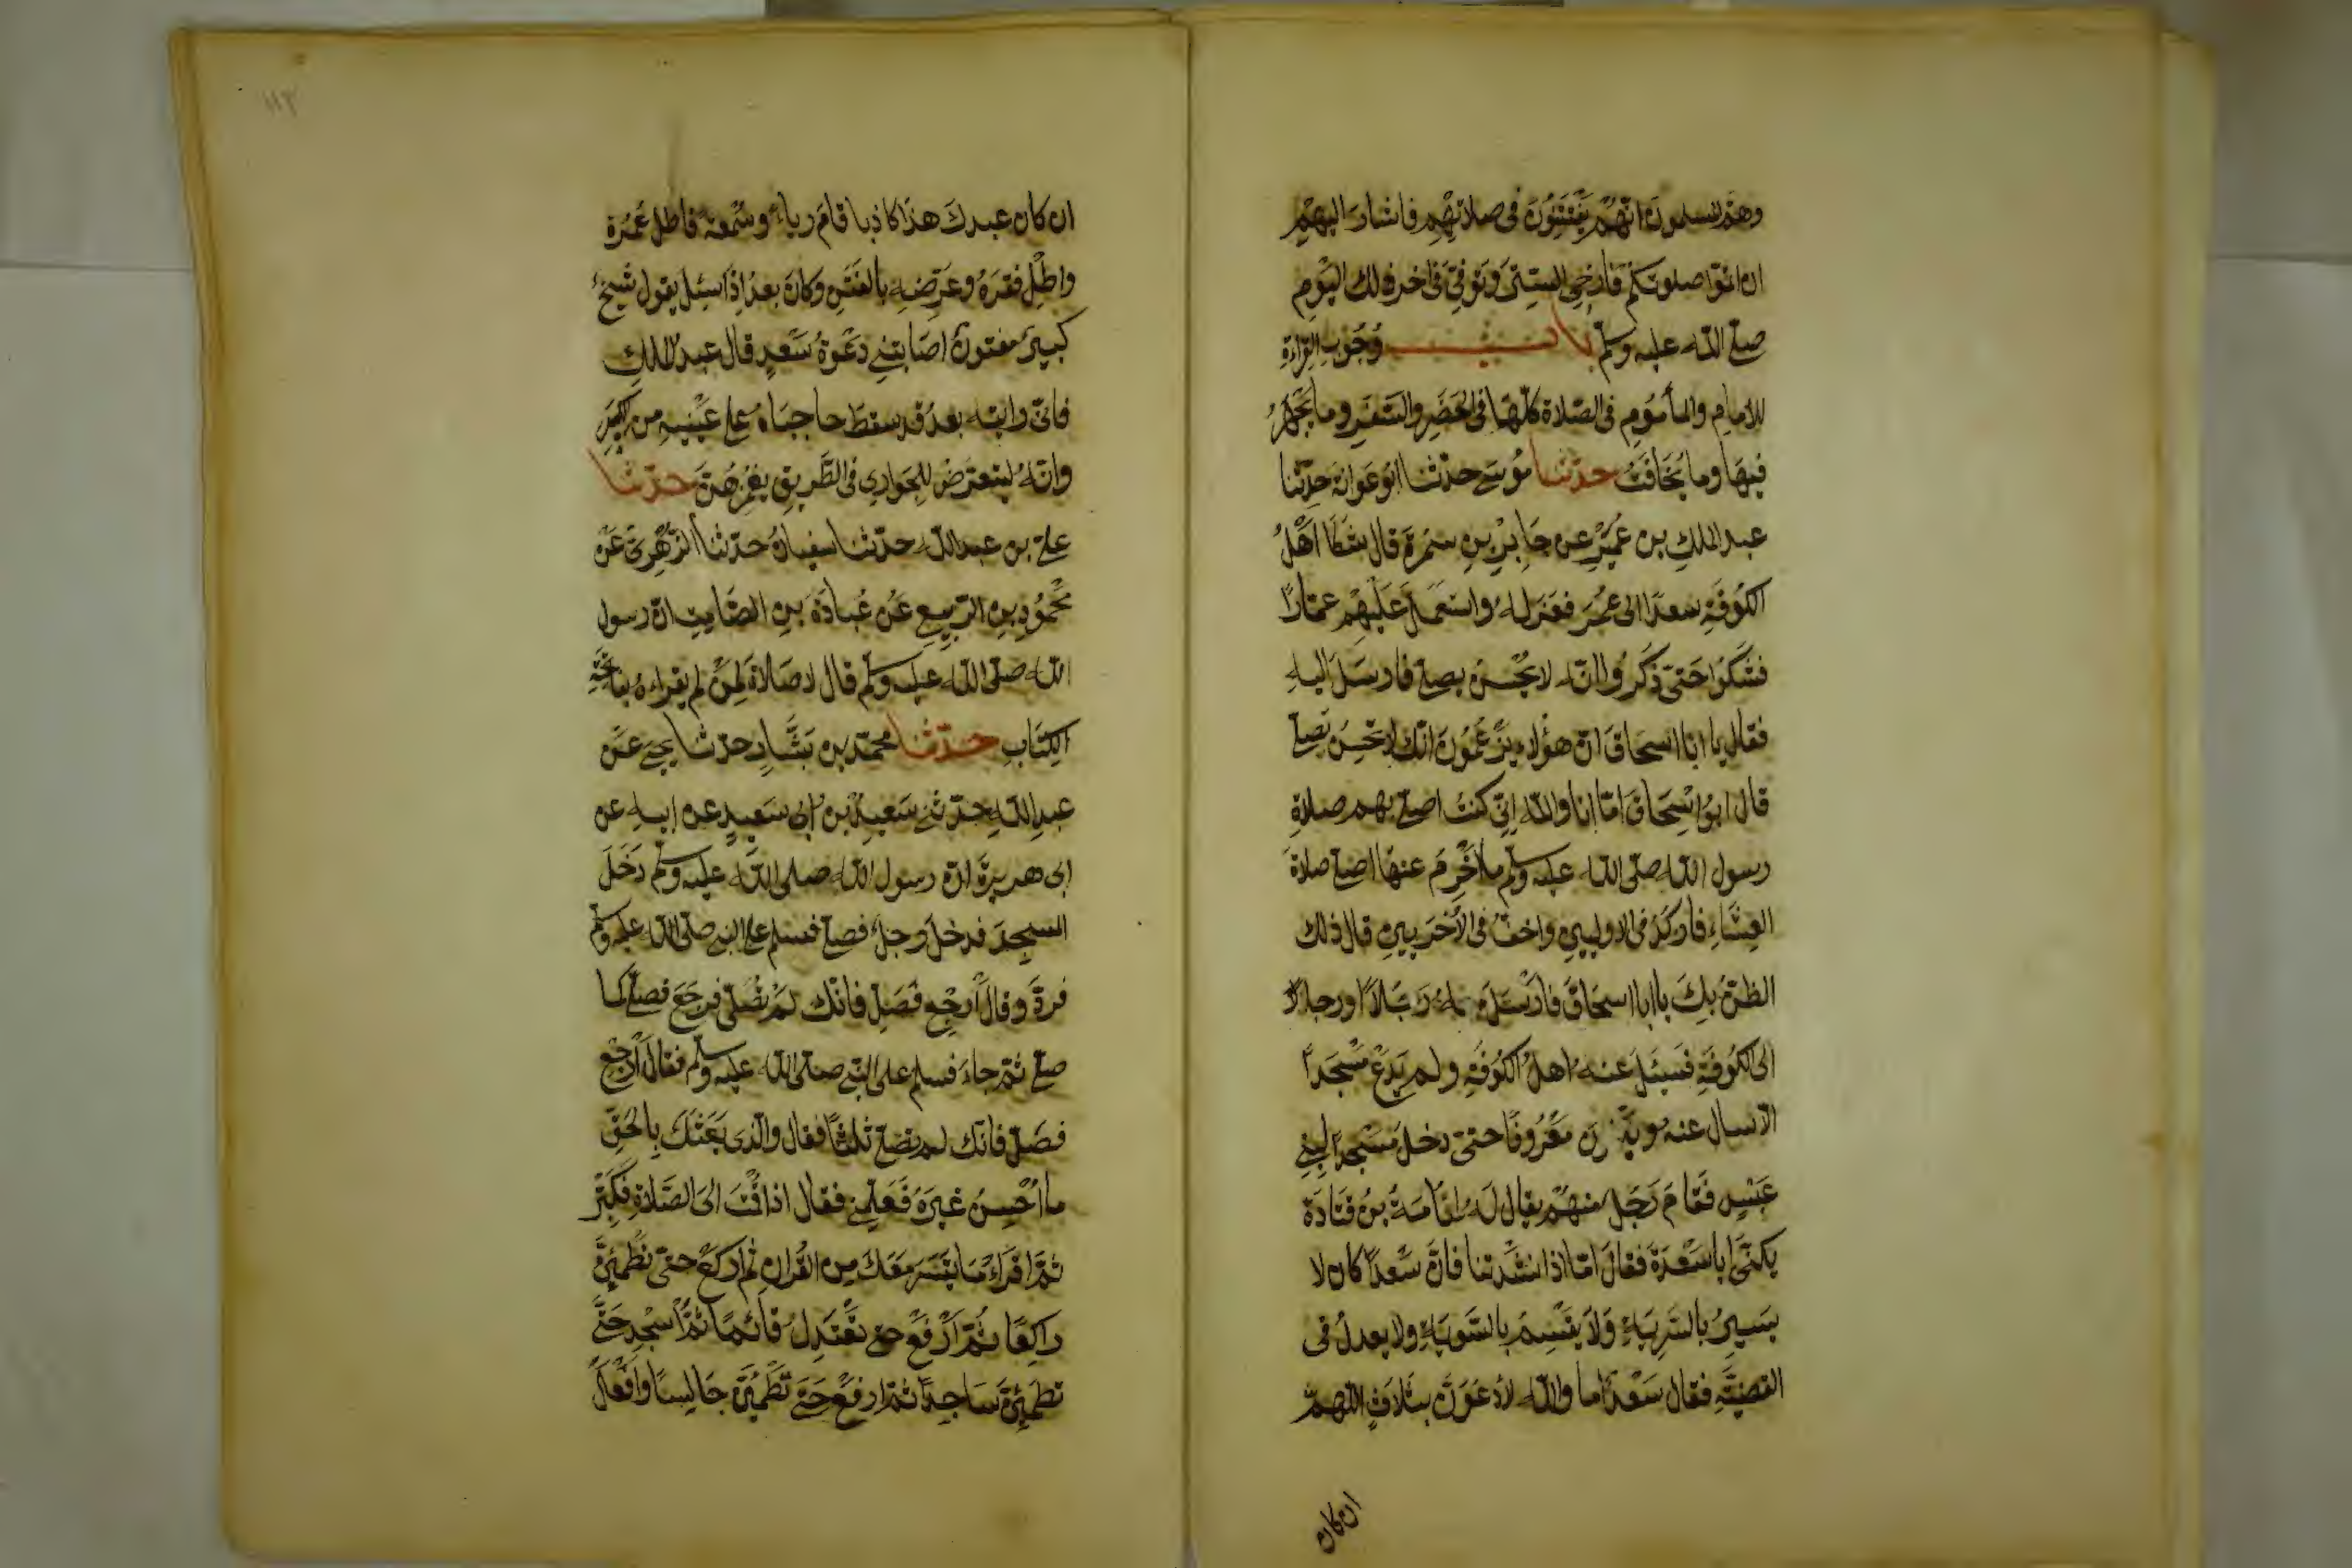 وهمّ المسلمون انّهُمْ يَفْتَتِنُونَ فى صلاتِهِم فاشارَ اليهِم
ان اتمّوا صلوتكم فارخى السِّتْرَ وَتُوفِّىَ فى اخر ذلك اليَوْمِ
صلّى اللّه عليه وسلّم بابُ وُجُوبِ القِراءةِ
للامامِ والمأمُومِ فى الصّلاة كلّها فى الحَضَرِ والسَّفَرِ وما يُجْهَرُ
فيهَا وما يُخَافَتُ حدّثنا مُوسَى حدّثنا ابُو عَوَانَةَ حدّثنا
عبد الملكِ بن عُمَيْرٍ عن جَابِرِ بنِ سَمُرَةَ قال شَكَا اَهْلُ
الكُوفَةِ سعدًا الى عُمَرَ فعَزَلهُ واستعمَلَ عَلَيْهِم عمّارًا
فشَكَوْا حَتّى ذَكَرُوا انّه لا يُحْسِنُ يصلّى فارسَلَ اليهِ
فقال يا ابا اسحَاقَ انّ هؤُلاءِ يَزْعُمُونَ انّك لا تُحْسِنُ تُصَلّى
قال ابُو اسْحَاقَ امّا انا واللّهِ انِّى كنتُ اصلّى بهم صلاةَ
رسول اللّه صلّى اللّه عليه وسلّم ما اَخْرِمُ عنها اصلّى صلاةَ
العِشَاءِ فاَرْكُدُ فى الاوليينِ واخفُّ فى الأخرَيينِ قال ذلك
الظنُّ بِكَ يا ابا اسحَاقَ فارْسَلَ معهُ رَجُلاً او رجالاً
الى الكُوفَةِ فَسَئَلَ عنه اهلُ الكُوفَةِ ولم يَدَعْ مَسْجِدًا
الّا سال عنه ويثنون مَعْرُوفًا حتّى دخل مَسْجِدًا لِبَنِى
عَبْسٍ فَقامَ رَجُل منهُم يقال لَهُ اُسَامَةُ بنُ قَتَادَةَ
يكنَى ابا سَعْدَةَ فقالَ امّا اذا نشَدتنا فانَّ سَعْدًا كان لا
يَسيرُ بالسَّرِيَّةِ وَلا يَقْسِمُ بِالسَّوِيَّةِ ولا يعدلُ فى
القضيَّةِ فقال سَعْدٌ اما واللّه لأدعُوَنَّ بثَلاثٍ اللّهمّ
ان كان
١١٣
ان كان عبدكَ هذا كاذبا قامَ رياءً وسُمْعةً فاطل عُمُرَهُ
واطِلْ فقرَهُ وعَرِّضهِ بالفِتَنِ وكانَ بعدُ اِذَا سئل يقول شيخٌ
كبيرٌ مفتونٌ اصَابتنِى دَعْوةُ سَعْدٍ قال عبدُ الملكِ
فانّى رايته بعدُ قد سقطَ حاجبَاهُ على عَيْنيهِ من الكِبَرِ
وانّه ليتعرّضُ للجَوارى فى الطَّرِيقِ يغْمِزهُنَّ حدّثنا
على بن عبد اللّه حدّثنا سفيانُ حدّثنا الزُّهْرِىّ عَنْ
مَحْمُودِ بنِ الرَّبِيعِ عَنْ عُبادَةَ بنِ الصَّامِتِ انّ رسول
اللّه صلّى اللّه عليه وسلّم قال لا صَلاةَ لِمَنْ لم يقراء بفاتحةِ
الكِتَابِ حدّثنا محمّد بن بَشَّارٍ حدّثنا يحيَى عَن
عبدِ اللّهِ حدّثنى سَعِيدُ بن ابِى سَعيدٍ عن ابيهِ عن
ابى هريرةَ انّ رسول اللّه صلى اللّه عليه وسلّم دَخَلَ
المسجدَ فدخلَ رجلٌ فصلّى فسلم على النبى صلى اللّه عليه وسلّم
فردّ وقالَ ارْجِعْ فصَلِّ فانّك لَمْ تُصَلّى فرجَعَ فصلّى كما
صلّى ثمّ جاءَ فسلم على النّبى صلّى اللّه عليه وسلّم فقال اَرْجِعْ
فصَلِّ فانّك لم تصلّ ثلثًا فقال والّذى بَعَثَكَ بِالحَقِّ
ما اُحْسِنُ غيرَهُ فَعَلِّمْنى فقال اذا قُمْتَ اِلَى الصَّلاةِ فَكَبِّرْ
ثمّ اقراءْ مَا يتيسّر مَعَكَ مِن القُرانِ ثُم اركَعْ حتى تَطْمَئِنَّ
راكِعًا ثُمّ ارْفَعْ حتى تَعْتَدِلَ قائمًا ثمَّ اسْجد حَتَّى
تطمئِنَّ سَاجِدًا ثمّ ارفعْ حَتى تَطْمئِنَّ جَالِسًا وافْعل